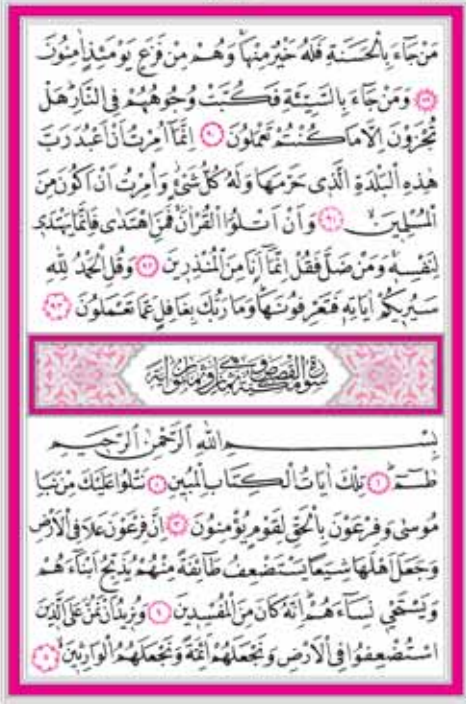 مَنْ جَٓاءَ بِالْحَسَنَةِ فَلَهُ خَيْرٌ مِنْهَاۚ وَهُمْ مِنْ فَزَعٍ يَوْمَئِذٍ اٰمِنُونَ
﴿٨٩﴾ وَمَنْ جَٓاءَ بِالسَّيِّئَةِ فَكُبَّتْ وُجُوهُهُمْ فِي النَّارِۜ هَلْ
تُجْزَوْنَ اِلَّا مَا كُنْتُمْ تَعْمَلُونَ ﴿٩٠﴾ اِنَّمَٓا اُمِرْتُ اَنْ اَعْبُدَ رَبَّ
هٰذِهِ الْبَلْدَةِ الَّذ۪ي حَرَّمَهَا وَلَهُ كُلُّ شَيْءٍۘ وَاُمِرْتُ اَنْ اَكُونَ مِنَ
الْمُسْلِم۪ينَۙ ﴿٩١﴾ وَاَنْ اَتْلُوَا الْقُرْاٰنَۚ فَمَنِ اهْتَدٰى فَاِنَّمَا يَهْتَد۪ي
لِنَفْسِه۪ۚ وَمَنْ ضَلَّ فَقُلْ اِنَّمَٓا اَنَا مِنَ الْمُنْذِر۪ينَ ﴿٩٢﴾ وَقُلِ الْحَمْدُ لِلّٰهِ
سَيُر۪يكُمْ اٰيَاتِه۪ فَتَعْرِفُونَهَاۜ وَمَا رَبُّكَ بِغَافِلٍ عَمَّا تَعْمَلُونَ ﴿٩٣﴾
سورة القصص مكية وهي ثمان وثمانون اية
بِسْمِ اللّٰهِ الرَّحْمٰنِ الرَّح۪يمِ
طٰسٓمٓ ﴿١﴾ تِلْكَ اٰيَاتُ الْكِتَابِ الْمُب۪ينِ ﴿٢﴾ نَتْلُوا عَلَيْكَ مِنْ نَبَأِ
مُوسٰى وَفِرْعَوْنَ بِالْحَقِّ لِقَوْمٍ يُؤْمِنُونَ ﴿٣﴾ اِنَّ فِرْعَوْنَ عَلَا فِي الْاَرْضِ
وَجَعَلَ اَهْلَهَا شِيَعًا يَسْتَضْعِفُ طَٓائِفَةً مِنْهُمْ يُذَبِّحُ اَبْنَٓاءَهُمْ
وَيَسْتَحْي۪ نِسَٓاءَهُمْۜ اِنَّهُ كَانَ مِنَ الْمُفْسِد۪ينَ ﴿٤﴾ وَنُر۪يدُ اَنْ نَمُنَّ عَلَى الَّذ۪ينَ
اسْتُضْعِفُوا فِي الْاَرْضِ وَنَجْعَلَهُمْ اَئِمَّةً وَنَجْعَلَهُمُ الْوَارِث۪ينَۙ ﴿٥﴾